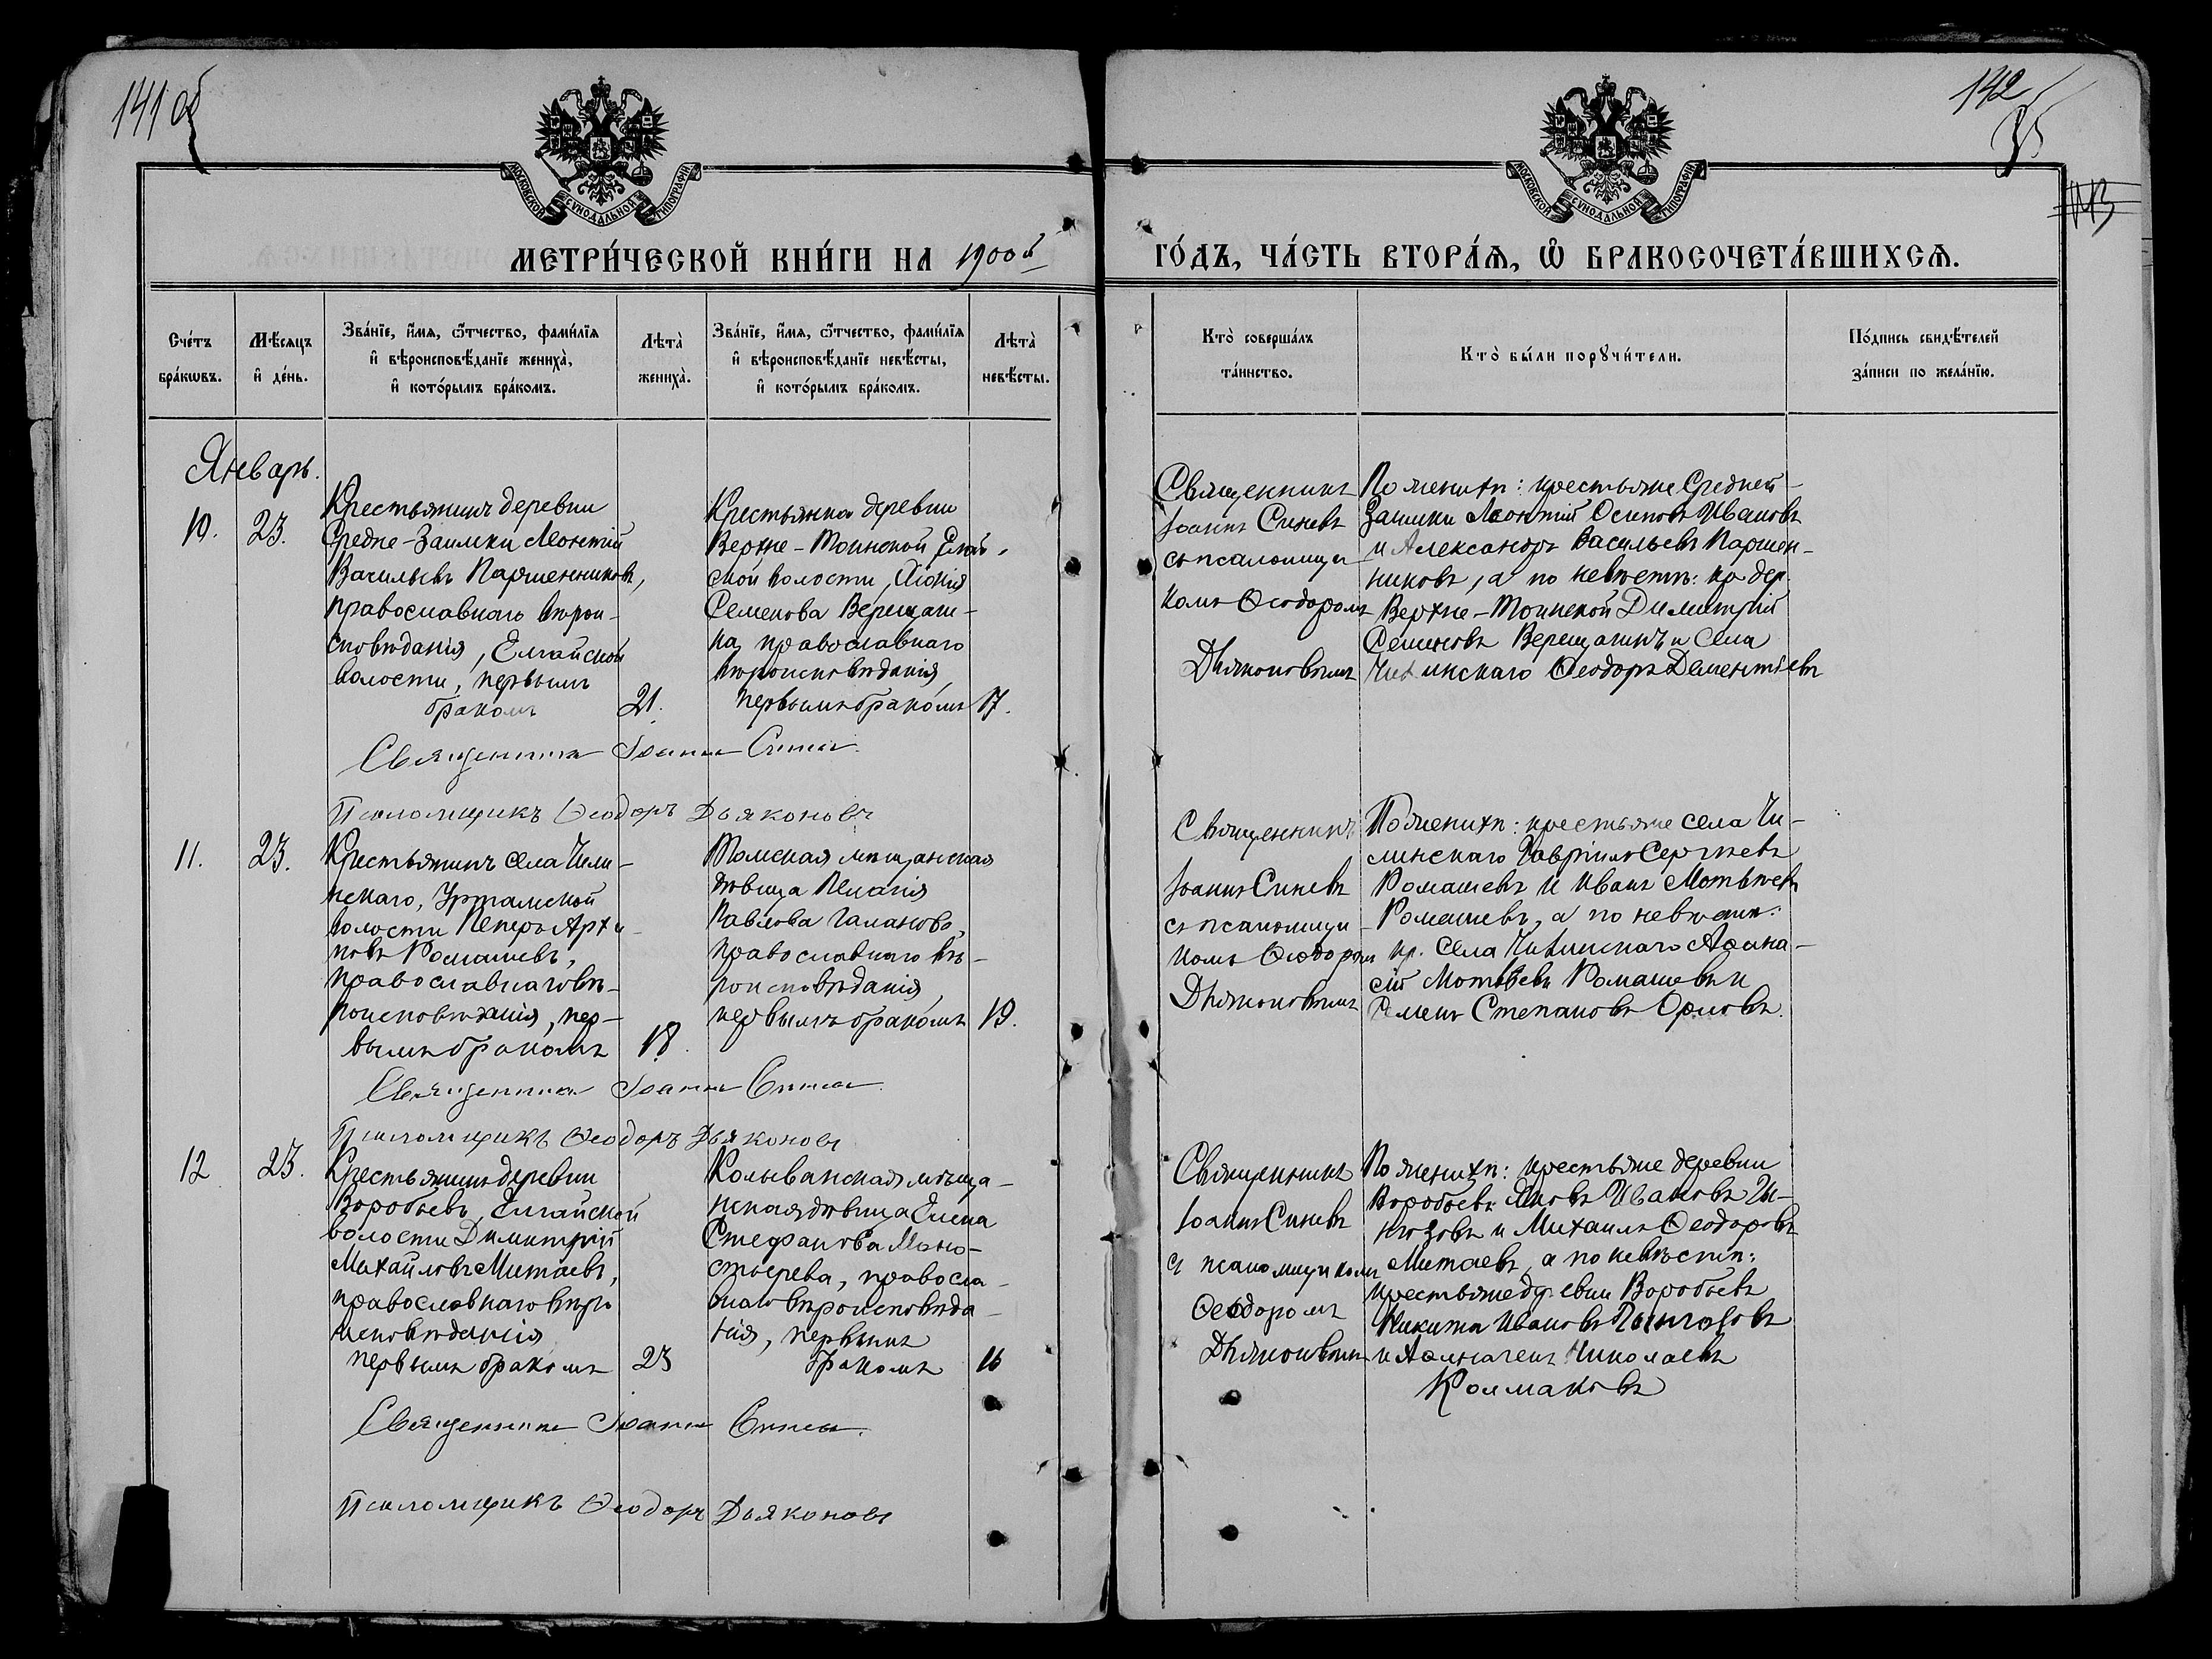 141 об
142
МОСКОВСКОЙ СѴНОДАЛЬНОЙ ТИПОГРАФІИ
МОСКОВСКОЙ СѴНОДАЛЬНОЙ ТИПОГРАФІИ
МЕТРИ́ЧЕСКОЙ КНИ́ГИ НА 1900й
ГО́ДЪ, ЧА́СТЬ ВТОРА́Ѧ, Ѽ БРАКОСОЧЕТА́ВШИХСѦ.
Сче́тъ
бра́кѡвъ.
Мѣ́сѧцъ
и҆ де́нь.
Зва́нїе, и҆́мѧ, ѻ҆́тчество, фамѝлїѧ
и҆ вѣроисповѣ́данїе жениха̀,
и҆ кото́рымъ бра́комъ.
Лѣта̀
жениха̀.
Зва́нїе, и҆́мѧ, ѻ҆́тчество, фамѝлїѧ
и҆ вѣроисповѣ́данїе невѣ́сты,
и҆ кото́рымъ бра́комъ.
Лѣта̀
невѣ́сты.
Кто̀ соверша́лъ
та́инство.
Кто̀ бы́ли порꙋчи́тели.
По́дпись свидѣ́телей
за́писи по жела́нїю.
Январь.
10.
23.
Крестьянинъ деревни
Средне-Заимки Леонтій
Васильевъ Паршенниковъ,
православнаго вѣрои-
сповѣданія, Елгайской
волости, первымъ
бракомъ
21.
Крестьянка деревни
Верхне-Тоинской
ской волости,
Семенова Верещаги-
на, православнаго
вѣроисповѣданія,
первымъ бракомъ
17.
Священникъ
Іоаннъ Синевъ
съ псаломщи
комъ Ѳеодоромъ
Дьяконовымъ
По женихѣ: крестьяне Средней-
Заимки Леонтій Осиповъ Ивановъ
и Александръ Васильевъ Паршен-
никовъ, а по невѣстѣ: кр. дер.
Верхне-Тоинской Димитрій
Семеновъ Верещагинъ и села
Чилинскаго Ѳеодоръ Дементьевъ
Священникъ Іоаннъ Синевъ
Псаломщикъ Ѳеодоръ Дьяконовъ
11.
23.
Крестьянинъ села Чили-
нскаго, Уртамской
волости Петръ Архи-
повъ Ромашевъ,
православнаго вѣ-
роисповѣданія, пер-
вымъ бракомъ
18.
Томская мѣщанская
дѣвица Пелагія
Павлова Галанова,
православнаго вѣ-
роисповѣданія,
первымъ бракомъ
19.
Священникъ
Іоаннъ Синевъ
съ псаломщи-
комъ Ѳеодоромъ
Дьяконовымъ
По женихѣ: крестьяне села Чи-
линскаго Гавріилъ Сергѣевъ
Ромашевъ и Иванъ Мотвѣевъ
Ромашевъ, а по невѣстѣ:
кр. села Чилинскаго Аѳана-
сій Мотвѣевъ Ромашевъ и
Семенъ Степановъ Орловъ.
Священникъ Іоаннъ Синевъ
Псаломщикъ Ѳеодоръ Дьяконовъ
12
23.
Крестьянинъ деревни
Воробьевъ, Елгайской
волости Димитрій
Михайловъ Митаевъ,
православнаго вѣро
исповѣданія
первымъ бракомъ
23
Колыванская мѣща-
нская дѣвица Елена
Стефанова Мано-
стырева, правосла-
внаго вѣроисповѣда-
нія, первымъ
бракомъ
16
Священникъ
Іоаннъ Синевъ
съ псаломщикомъ
Ѳеодоромъ
Дьяконовымъ
По женихѣ: крестьяне деревни
Воробьевъ Яковъ Ивановъ
и Михаилъ Ѳеодоровъ
Митаевъ, а по невѣстѣ:
крестьяне деревни Воробьевъ
Никита Ивановъ
и Николаевъ
Колмаковъ
Священникъ Іоаннъ Синевъ
Псаломщикъ Ѳеодоръ Дьяконовъ